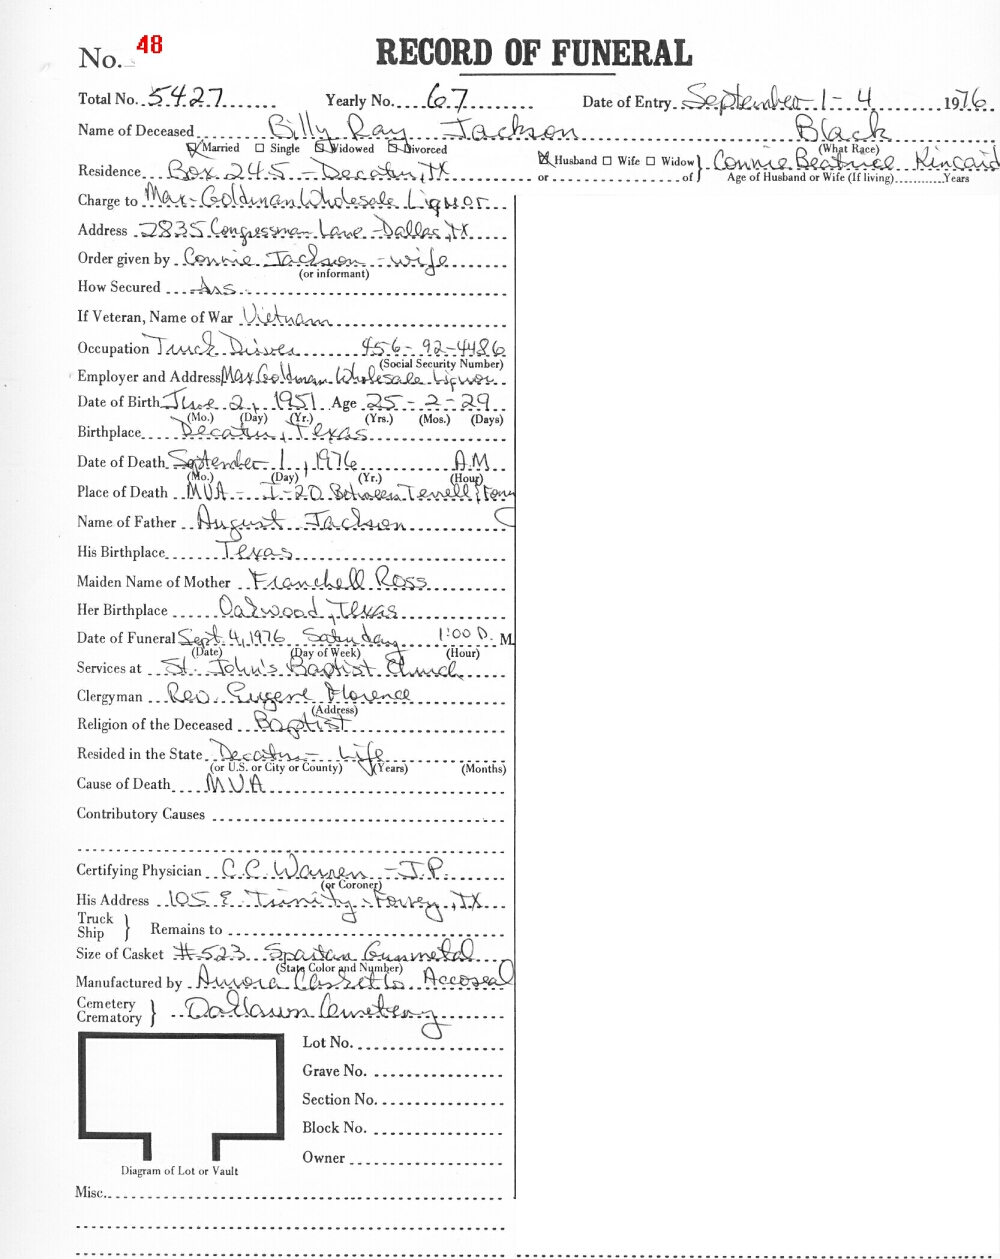 No. 48 RECORD OF FUNERAL
Total No. 5427 Yearly No. 67 Date of Entry September 1-4 1976
Name of Deceased Billy Ray Jackson Black
Married Single Widowed Divorced (What Race)
Husband Wife Widow } Connie Beatrice Kincaid
Residence Box 245 - Decatur, TX or of Age of Husband or Wife (If living) Years
Charge to Max-Goldman Wholesale Liquor
Address 2835 Congressman Lane - Dallas, TX
Order given by Connie Jackson - wife
(or informant)
How Secured Ins
If Veteran, Name of War Vietnam
Occupation Truck Driver 456-92-4486
(Social Security Number)
Employer and Address Max Goldman Wholesale Liquor
Date of Birth June 2, 1951 Age 25-2-29
(Mo.) (Day) (Yr.) (Yrs.) (Mos.) (Days)
Birthplace Decatur, Texas
Date of Death September 1, 1976 A.M
(Mo.) (Day) (Yr.) (Hour)
Place of Death MVA - I-20 Between Terrell &
Name of Father August Jackson
His Birthplace Texas
Maiden Name of Mother Franchell Ross
Her Birthplace Oakwood, Texas
Date of Funeral Sept. 4, 1976 Saturday 1:00 P. M.
(Date) (Day of Week) (Hour)
Services at St. John's Baptist Church
Clergyman Rev. Eugene Florence
(Address)
Religion of the Deceased Baptist
Resided in the State Decatur - Life
(or U.S. or City or County) (Years) (Months)
Cause of Death MVA
Contributory Causes
Certifying Physician C.C. Warren - J.P.
(or Coroner)
His Address 105 E. Trinity - Forney, TX
Truck
Ship } Remains to
Size of Casket #523 Spartan Gunmetal
(State Color and Number)
Manufactured by Aurora Casket Co Accoseal
Cemetery
Crematory } Oaklawn Cemetery
Lot No.
Grave No.
Section No.
Block No.
Owner
Diagram of Lot or Vault
Misc.